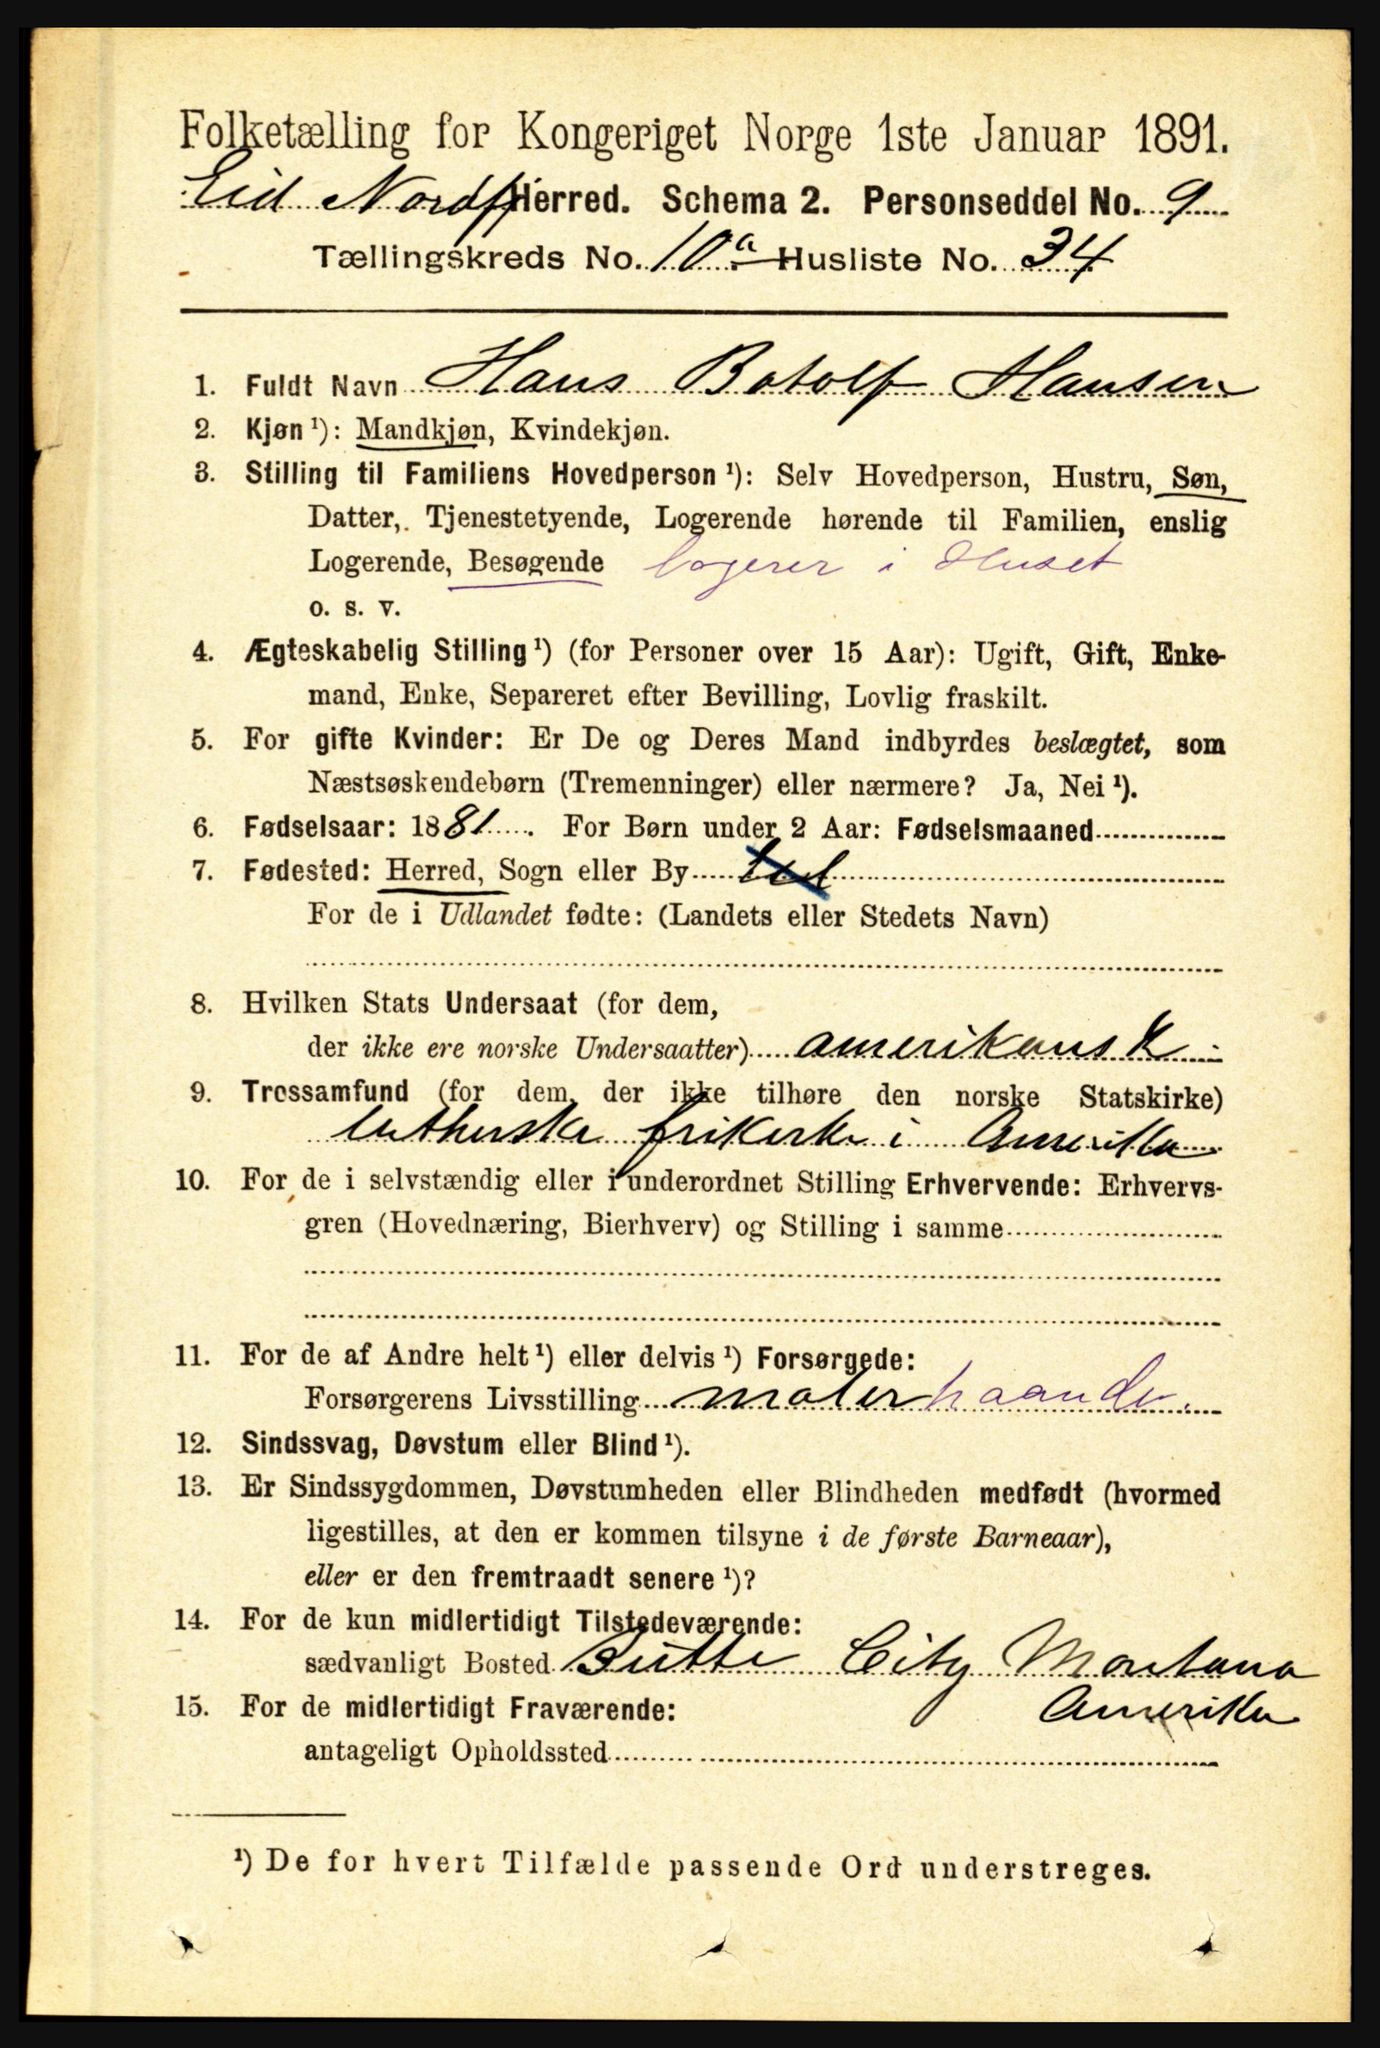 Folketælling for Kongeriget Norge 1ste Januar 1891.
Eid Nordfj Herred. Schema 2. Personseddel No. 9
Tællingskreds No. 10a Husliste No. 34
1. Fuldt Navn Hans Botolf Hansen
2. Kjøn ¹): Mandkjøn, Kvindekjøn.
3. Stilling til Familiens Hovedperson ¹): Selv Hovedperson, Hustru, Søn,
Datter, Tjenestetyende, Logerende hørende til Familien, enslig
Logerende, Besøgende logerer i Huset
o. s. v.
4. Ægteskabelig Stilling ¹) (for Personer over 15 Aar): Ugift, Gift, Enke-
mand, Enke, Separeret efter Bevilling, Lovlig fraskilt.
5. For gifte Kvinder: Er De og Deres Mand indbyrdes beslægtet, som
Næstsøskendebørn (Tremenninger) eller nærmere? Ja, Nei ¹).
6. Fødselsaar: 1881. For Børn under 2 Aar: Fødselsmaaned
7. Fødested: Herred, Sogn eller By
For de i Udlandet fødte: (Landets eller Stedets Navn)
8. Hvilken Stats Undersaat (for dem,
der ikke ere norske Undersaatter) amerikansk
9. Trossamfund (for dem, der ikke tilhøre den norske Statskirke)
lutherske frikirke i Amerika
10. For de i selvstændig eller i underordnet Stilling Erhvervende: Erhvervs-
gren (Hovednæring, Bierhverv) og Stilling i samme
11. For de af Andre helt ¹) eller delvis ¹) Forsørgede:
Forsørgerens Livsstilling malerhaandv.
12. Sindssvag, Døvstum eller Blind ¹).
13. Er Sindssygdommen, Døvstumheden eller Blindheden medfødt (hvormed
ligestilles, at den er kommen tilsyne i de første Barneaar),
eller er den fremtraadt senere ¹)?
14. For de kun midlertidigt Tilstedeværende:
sædvanligt Bosted Butte City Montana
Amerika
15. For de midlertidigt Fraværende:
antageligt Opholdssted
¹) De for hvert Tilfælde passende Ord understreges.